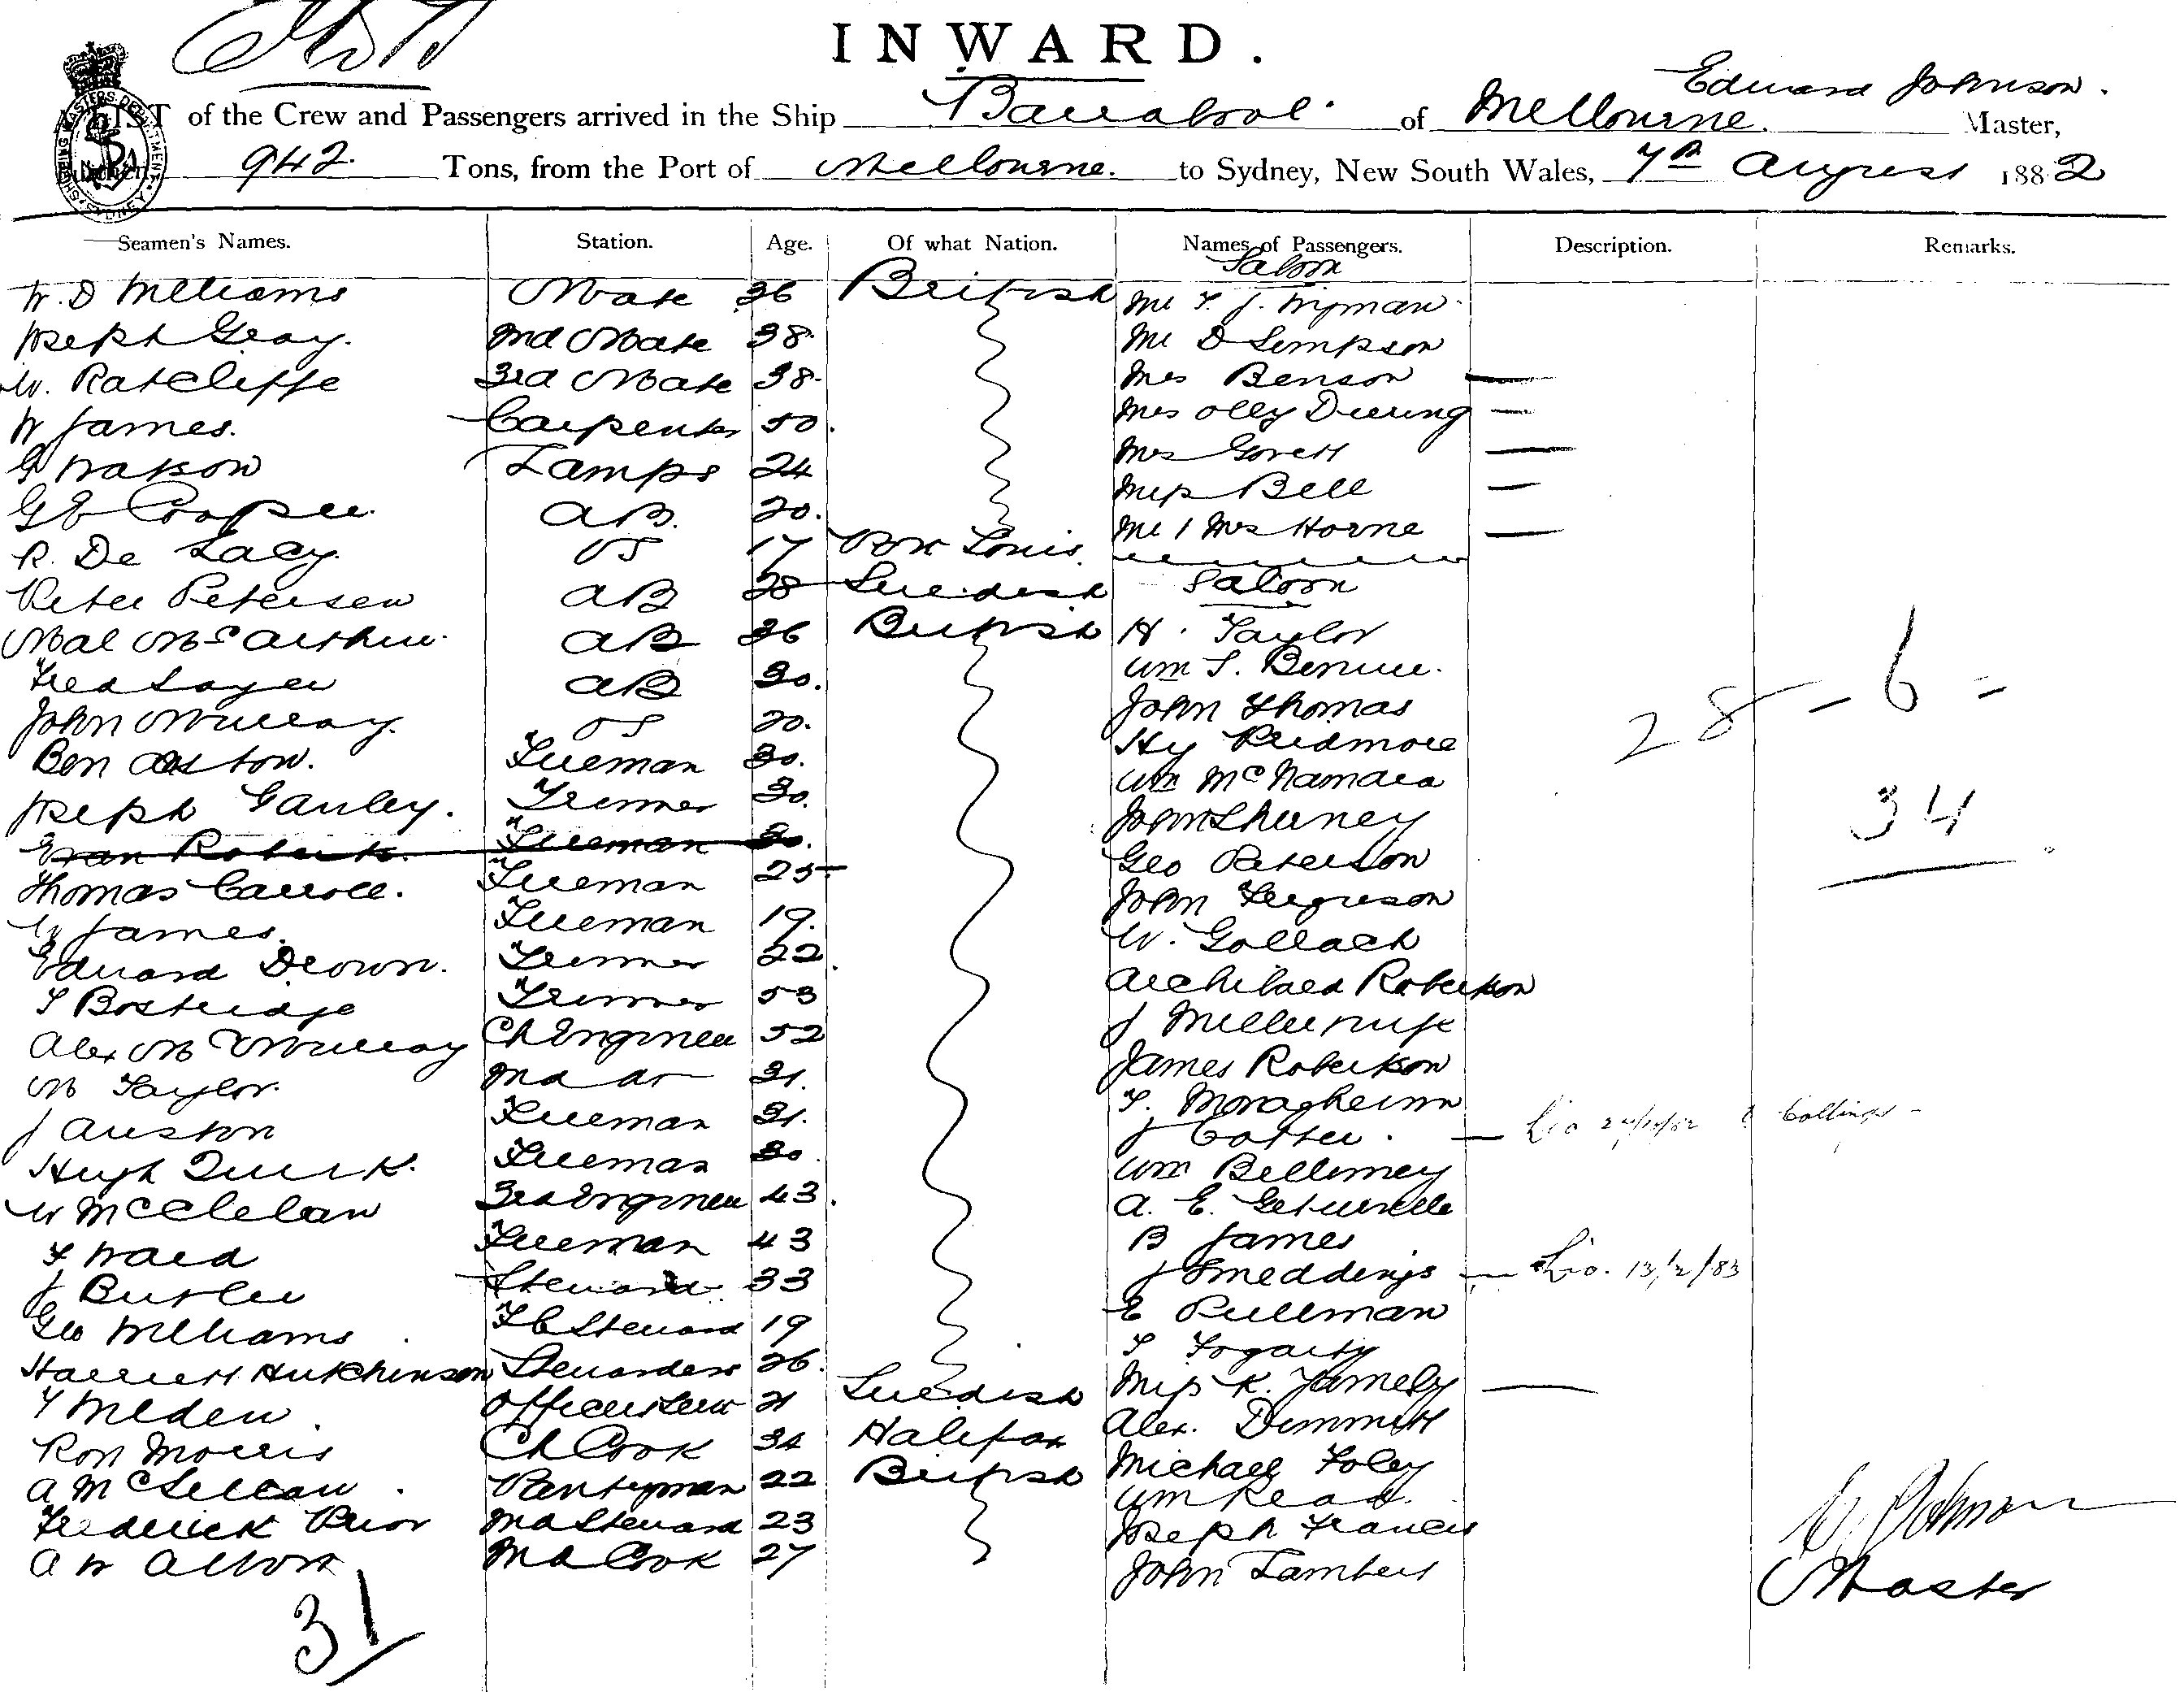 INWARD.
LIST of the Crew and Passengers arrived in the Ship Barrabool of Melbourne Edward Johnson. Master,
942 Tons, from the Port of Melbourne. to Sydney, New South Wales, 7th August 1882
Seamen's Names. Station. Age. Of what Nation. Names of Passengers. Description. Remarks.
Saloon
W. D Williams Mate 36 British Mr T. J. Wyman
Joseph Gray. 2nd Mate 38. Mr D Simpson
W. Ratcliffe 3rd Mate 38. Mrs Benson —
W James. Carpenter 50. Mrs Olly Deering —
G Watson Lamps 24 Mrs Govett —
G E Cooper AB. 20. Miss Bell —
R. De Lacy. OS 17 Port Louis. Mr / Mrs Horne —
Peter Petersen AB 28 Swedish Saloon
Mal McArthur. AB 36 British H. Taylor
Fred Sayer AB 30. Wm S.
John Murray. OS 20. John Thomas
Ben Aston. Fireman 30. Hy Pridmore 28 - 6 =
Joseph Ganley. Trimmer 30. Wm McNamara 34
Evan Roberts. Fireman 30. John
Thomas Carroll. Fireman 25 Geo Peterson
W James. Fireman 19. John Ferguson
Edward Brown. Trimmer 22. W. Gollach
T Bostridge Trimmer 53 Archibald Robertson
Alex M Murray Ch Engineer 52 J
M Taylor. 2nd do 31. James Robertson
J Auston Fireman 31. T.
Hugh Quirk. Fireman 30. J Cotter. — Collings
W McClelan 3rd Engineer 43. Wm Bellimey
F Ward Fireman 43 A. E.
J Butler Steward 33 B James
Geo Williams F C Steward 19 J Smeddings — 13/2/83
Harriett Hutchinson Stewardess 26. E Pullman
T Meden. Officers Stew 21 Swedish T Fogarty
Ron Morris Ch Cook 34 Halifax Miss K. —
A McLellan. Pantryman 22 British Alex. Dimmitt
Frederick Prior 2nd Steward 23 Michael Foley
A W 2nd Cook 27 Wm Read.
Joseph Francis
John Lambert
31
E. Johnson
Master